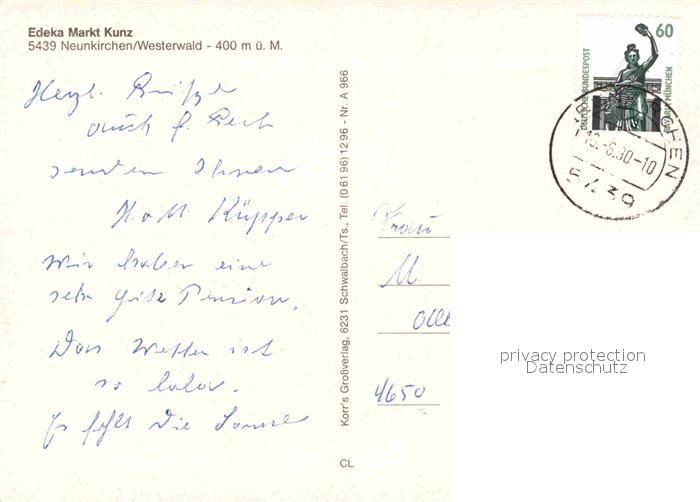 Edeka Markt Kunz
5439 Neunkirchen/Westerwald - 400 m ü. M.
Herzl. Grüße
auch f. Rest
senden Ihnen
H. u. M. Küpper
Wir haben eine
sehr gute Pension,
Das Wetter ist
so lala.
Es fehlt die Sonne
Korr's Großverlag, 6231 Schwalbach/Ts., Tel. (0 61 96) 12 96 - Nr. A 966
CL
60
DEUTSCHE BUNDESPOST
BAVARIA MÜNCHEN
CHEN
-6.90-10
5439
Frau
M
4650
privacy protection
Datenschutz